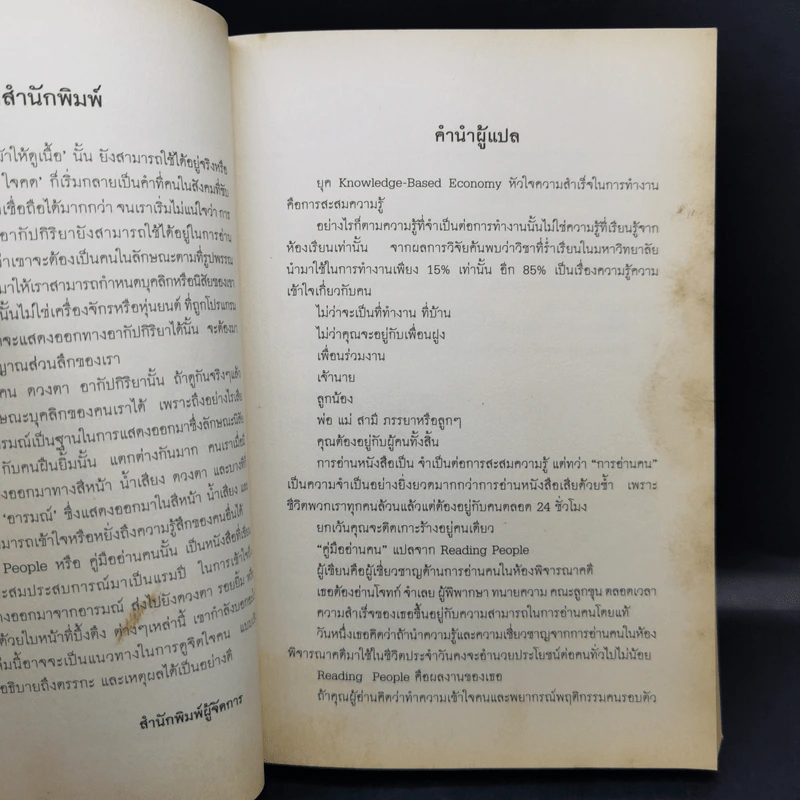 สำนักพิมพ์
ให้ดูเนื้อ' นั้น ยังสามารถใช้ได้อยู่จริงหรือ
'ใจคด' ก็เริ่มกลายเป็นคำที่คนในสังคมที่ซับ
เชื่อถือได้มากกว่า จนเราเริ่มไม่แน่ใจว่า การ
อากัปกิริยายังสามารถใช้ได้อยู่ในการอ่าน
ว่าเขาจะต้องเป็นคนในลักษณะตามที่รูปพรรณ
มาให้เราสามารถกำหนดบุคลิกหรือนิสัยของเรา
นั้นไม่ใช่เครื่องจักรหรือหุ่นยนต์ ที่ถูกโปรแกรม
จะแสดงออกทางอากัปกิริยาได้นั้น จะต้องมา
ญาณส่วนลึกของเรา
คน ดวงตา อากัปกิริยานั้น ถ้าดูกันจริงๆแล้ว
ษณะบุคลิกของคนเราได้ เพราะถึงอย่างไรเสีย
อารมณ์เป็นฐานในการแสดงออกมาซึ่งลักษณะนิสัย
กับคนฝืนยิ้มนั้น แตกต่างกันมาก คนเราเมื่อมี
งออกมาทางสีหน้า น้ำเสียง ดวงตา และบางที่ก็
'อารมณ์' ซึ่งแสดงออกมาในสีหน้า น้ำเสียง และ
มารถเข้าใจหรือหยั่งถึงความรู้สึกของคนอื่นได้
People หรือ คู่มืออ่านคนนั้น เป็นหนังสือที่เรียบ
ะสมประสบการณ์มาเป็นแรมปี ในการเข้าใจถึง
งออกมาจากอารมณ์ ส่งไปยังดวงตา รอยยิ้ม หรือ
ด้วยใบหน้าที่บึ้งตึง ต่างๆเหล่านี้ เขากำลังบอกอะไร
ล่มนี้อาจจะเป็นแนวทางในการดูจิตใจคน แบบ
อธิบายถึงตรรกะ และเหตุผลได้เป็นอย่างดี
สำนักพิมพ์ผู้จัดการ
คำนำผู้แปล
ยุค Knowledge-Based Economy หัวใจความสำเร็จในการทำงาน
คือการสะสมความรู้
อย่างไรก็ตามความรู้ที่จำเป็นต่อการทำงานนั้นไม่ใช่ความรู้ที่เรียนรู้จาก
ห้องเรียนเท่านั้น จากผลการวิจัยค้นพบว่าวิชาที่ร่ำเรียนในมหาวิทยาลัย
นำมาใช้ในการทำงานเพียง 15% เท่านั้น อีก 85% เป็นเรื่องความรู้ความ
เข้าใจเกี่ยวกับคน
ไม่ว่าจะเป็นที่ทำงาน ที่บ้าน
ไม่ว่าคุณจะอยู่กับเพื่อนฝูง
เพื่อนร่วมงาน
เจ้านาย
ลูกน้อง
พ่อ แม่ สามี ภรรยาหรือลูกๆ
คุณต้องอยู่กับผู้คนทั้งสิ้น
การอ่านหนังสือเป็น จำเป็นต่อการสะสมความรู้ แต่ทว่า "การอ่านคน"
เป็นความจำเป็นอย่างยิ่งยวดมากกว่าการอ่านหนังสือเสียด้วยซ้ำ เพราะ
ชีวิตพวกเราทุกคนล้วนแล้วแต่ต้องอยู่กับคนตลอด 24 ชั่วโมง
ยกเว้นคุณจะติดเกาะร้างอยู่คนเดียว
"คู่มืออ่านคน" แปลจาก Reading People
ผู้เขียนคือผู้เชี่ยวชาญด้านการอ่านคนในห้องพิจารณาคดี
เธอต้องอ่านโจทก์ จำเลย ผู้พิพากษา ทนายความ คณะลูกขุน ตลอดเวลา
ความสำเร็จของเธอขึ้นอยู่กับความสามารถในการอ่านคนโดยแท้
วันหนึ่งเธอคิดว่าถ้านำความรู้และความเชี่ยวชาญจากการอ่านคนในห้อง
พิจารณาคดีมาใช้ในชีวิตประจำวันคงจะอำนวยประโยชน์ต่อคนทั่วไปไม่น้อย
Reading People คือผลงานของเธอ
ถ้าคุณผู้อ่านคิดว่าทำความเข้าใจคนและพยากรณ์พฤติกรรมคนรอบตัว